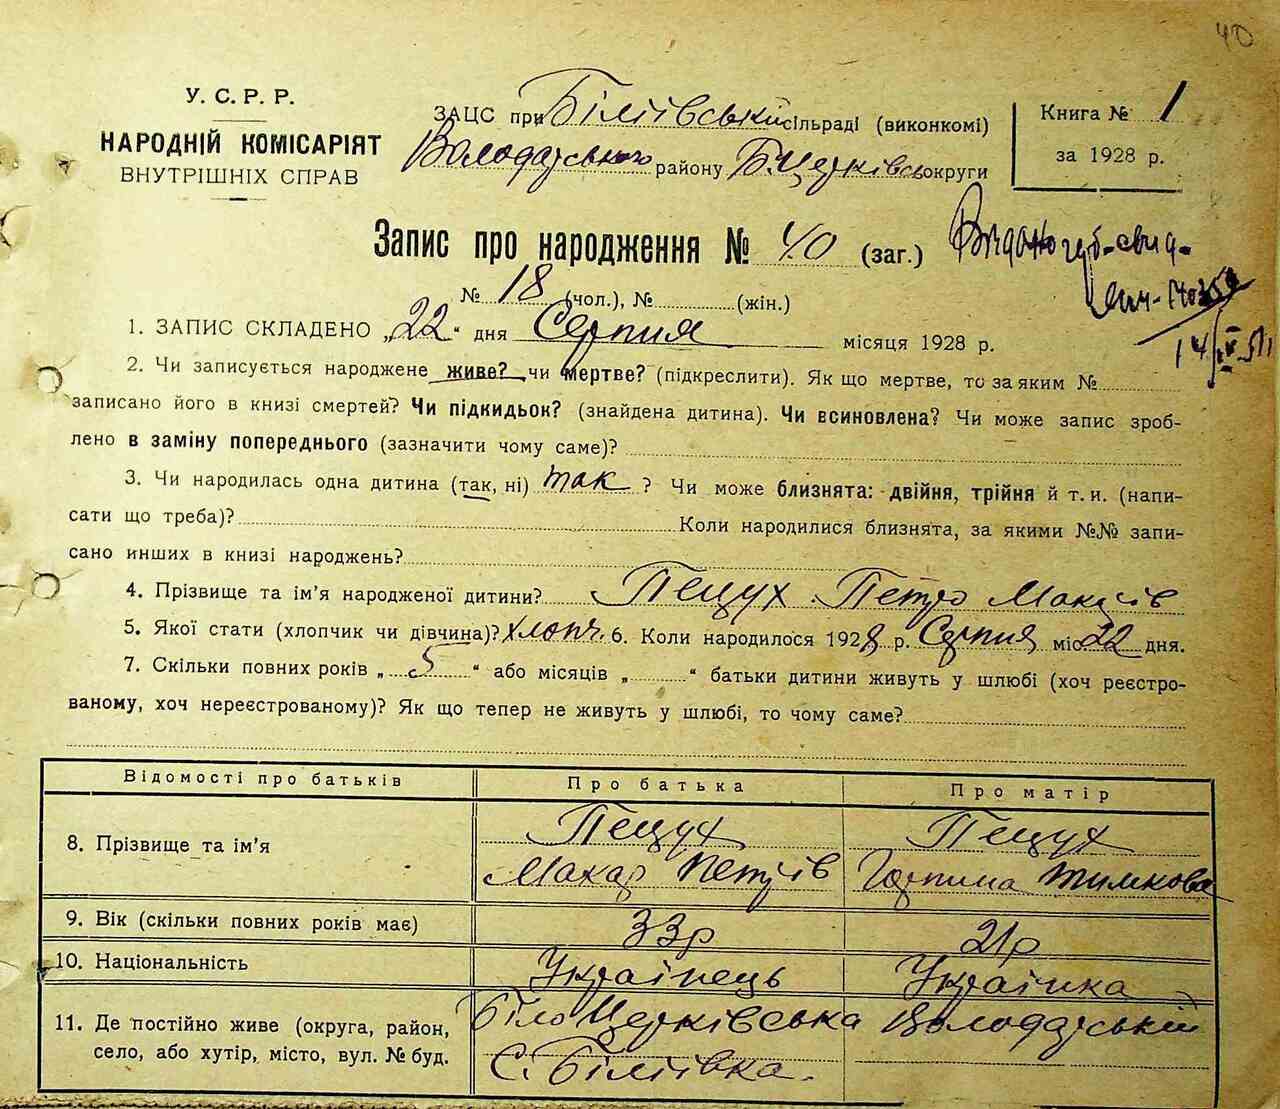 40
У. С. Р. Р.
НАРОДНІЙ КОМІСАРІЯТ
ВНУТРІШНІХ СПРАВ
ЗАЦС при Біліївській сільраді (виконкомі)
Володарського району Б.Церківсь округи
Книга № 1
за 1928 р.
Запис про народження № 40 (заг.)
№ 18 (чол.), № (жін.)
Видано
1. ЗАПИС СКЛАДЕНО „22“ дня Серпня місяця 1928 р.
2. Чи записується народжене живе? чи мертве? (підкреслити). Як що мертве, то за яким №
записано його в книзі смертей? Чи підкидьок? (знайдена дитина). Чи всиновлена? Чи може запис зроб-
лено в заміну попереднього (зазначити чому саме)?
3. Чи народилась одна дитина (так, ні) так ? Чи може близнята: двійня, трійня й т. и. (напи-
сати що треба)? Коли народилися близнята, за якими №№ запи-
сано инших в книзі народжень?
4. Прізвище та ім’я народженої дитини? Пецух Петро
5. Якої стати (хлопчик чи дівчина)? хлопч. 6. Коли народилося 1928 р. Серпня міс. 22 дня.
7. Скільки повних років „ 5 “ або місяців „ “ батьки дитини живуть у шлюбі (хоч реєстро-
ваному, хоч нереєстрованому)? Як що тепер не живуть у шлюбі, то чому саме?
Відомості про батьків Про батька Про матір
8. Прізвище та ім’я Пецух Пецух
Макар Петрів Горпина Тимкова
9. Вік (скільки повних років має) 33р 21р
10. Національність Українець Українка
11. Де постійно живе (округа, район, Біло Церківська Володарський
село, або хутір, місто, вул. № буд. С. Біліївка.